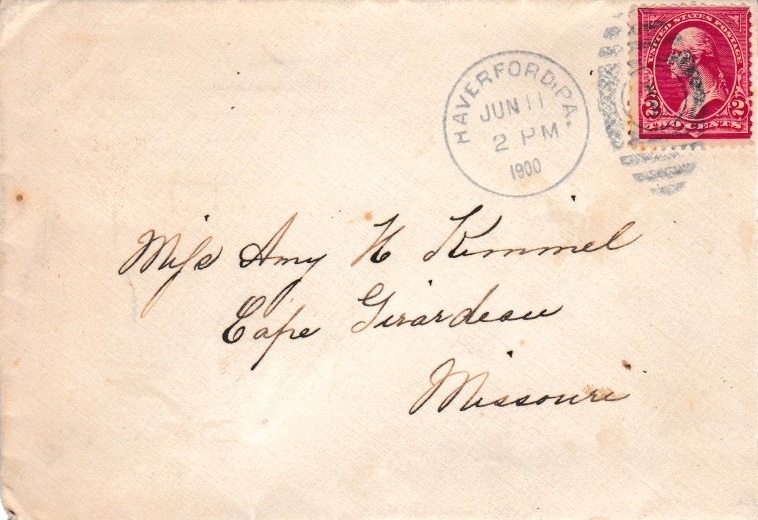 HAVERFORD, PA.
JUN 11
2 PM
1900
UNITED STATES POSTAGE
2 2
TWO CENTS
Miss Amy H Kimmel
Cape Girardeau
Missouri